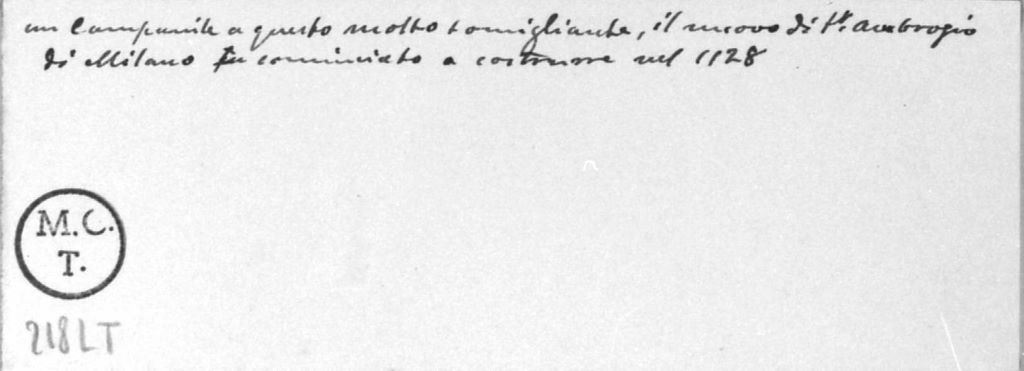 un campanile a questo molto somigliante, il nuovo di St. Ambrogio
di Milano fu cominciato a costruire nel 1128
M.C.
T.
218 LT